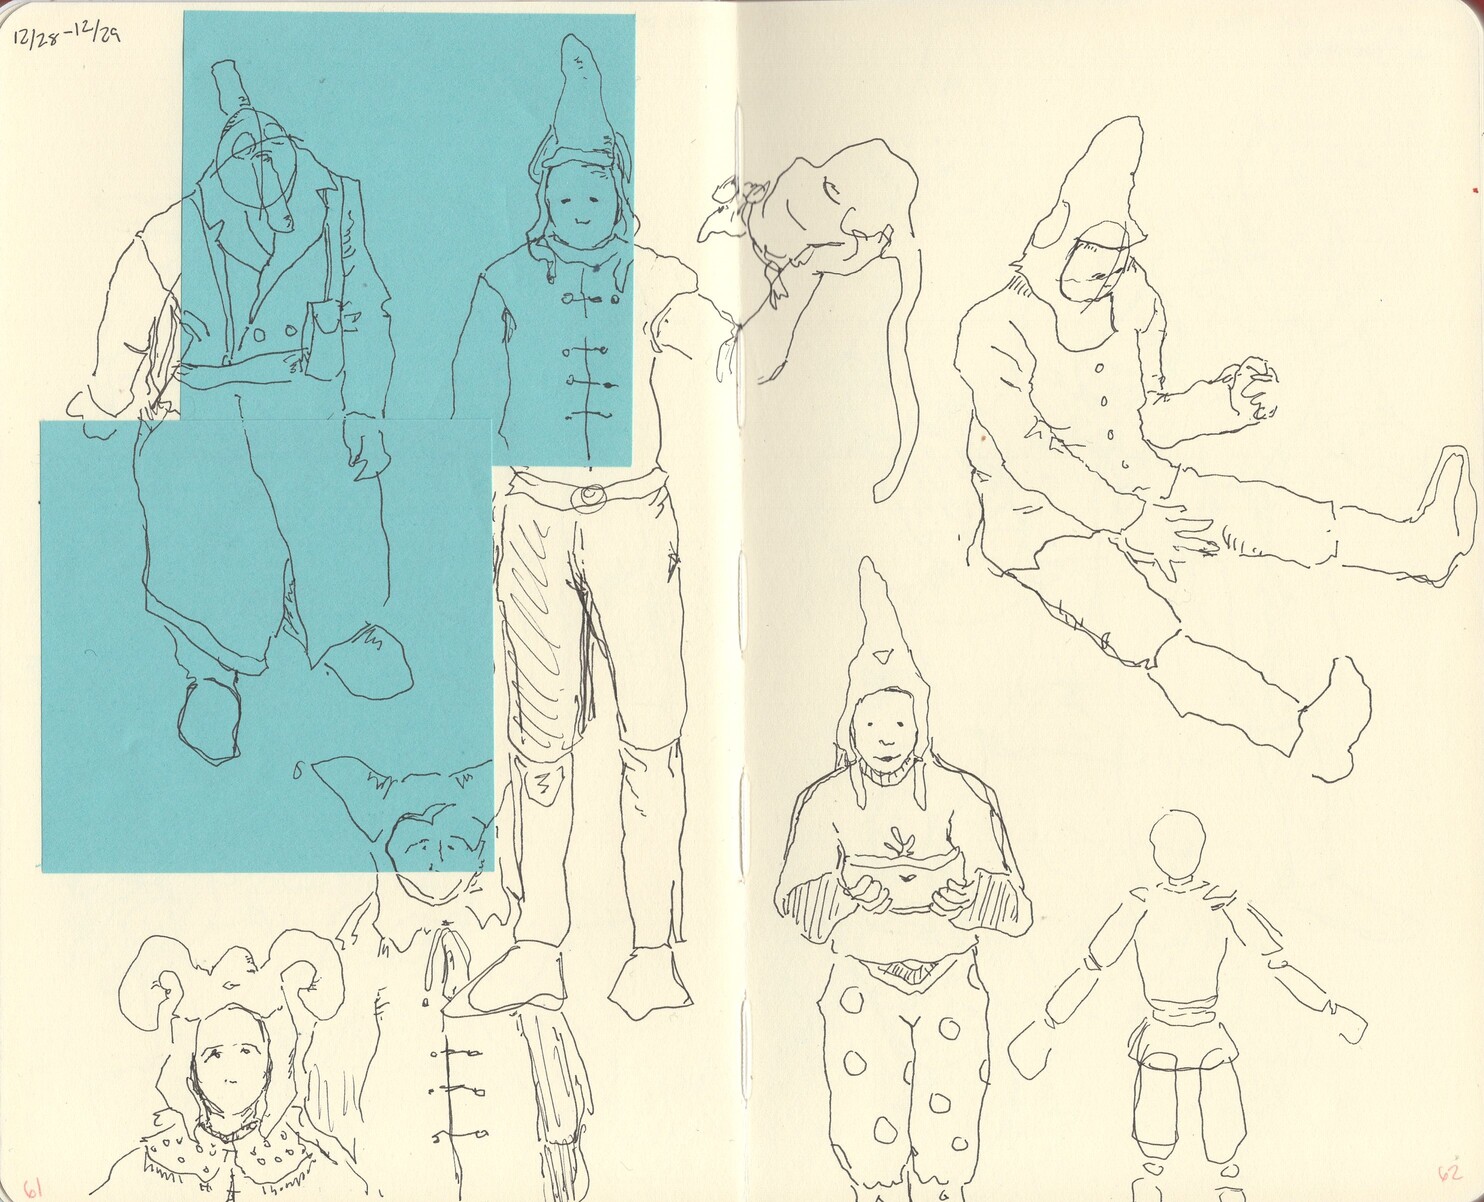 12/28-12/29
61
62